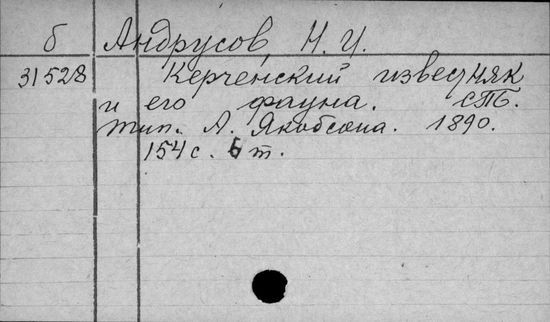 б Андрусов, Н. И.
31528 Керченский известняк
и его фауна. СПБ.
тип. А. Якобсона. 1890.
154 с. 6 т.